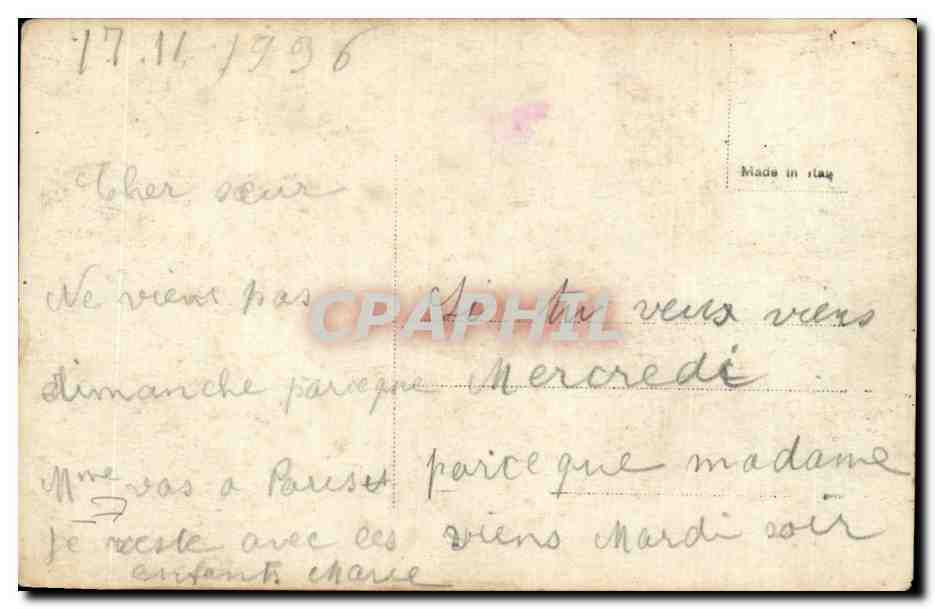 17.11.1936
Cher sœur
Ne viens pas
dimanche parceque
Mme vas a Paris et
je reste avec les
enfants Marie
Made in Italy
Si tu veux viens
Mercredi
parceque madame
viens Mardi soir
CPAPHIL